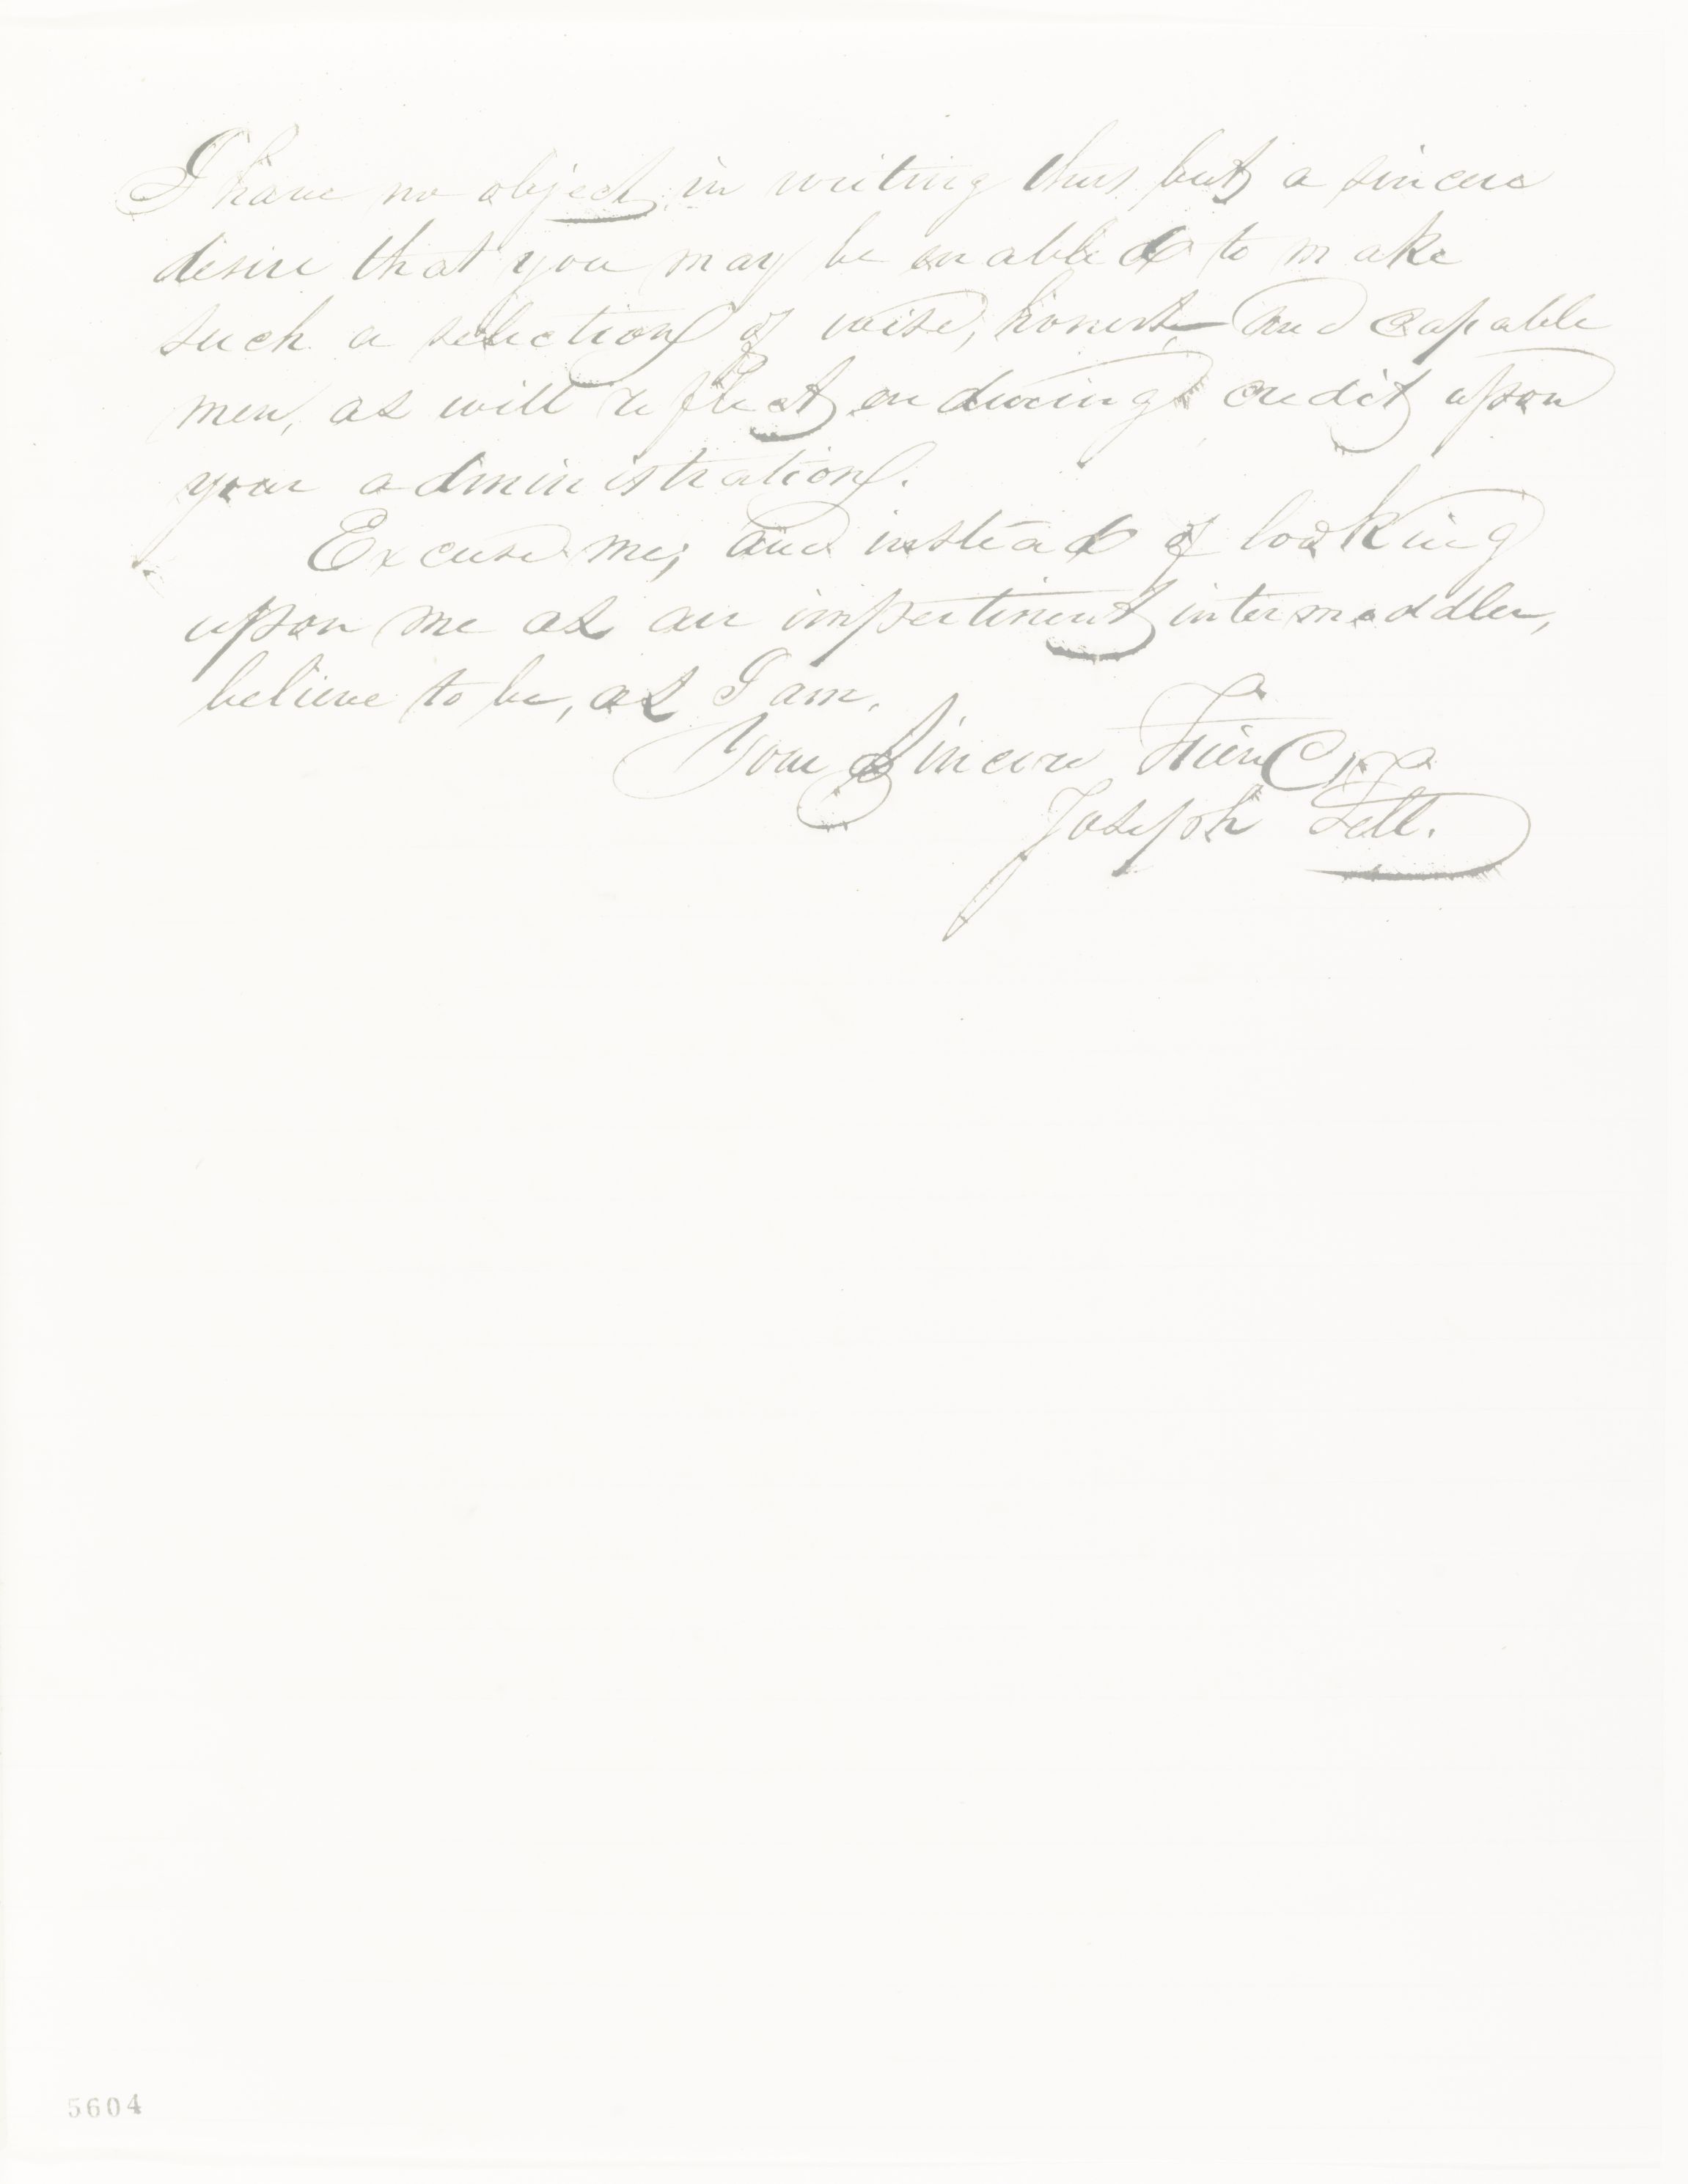 I have no object in writing thus but a sincere
desire that you may be enabled to make
such a selection of wise, honest and capable
men, as will reflect enduring credit upon
your administration.
Excuse me, and instead of looking
upon me as an impertinent intermeddler,
believe to be, as I am,
Your sincere Friend,
Joseph Fell.
5604